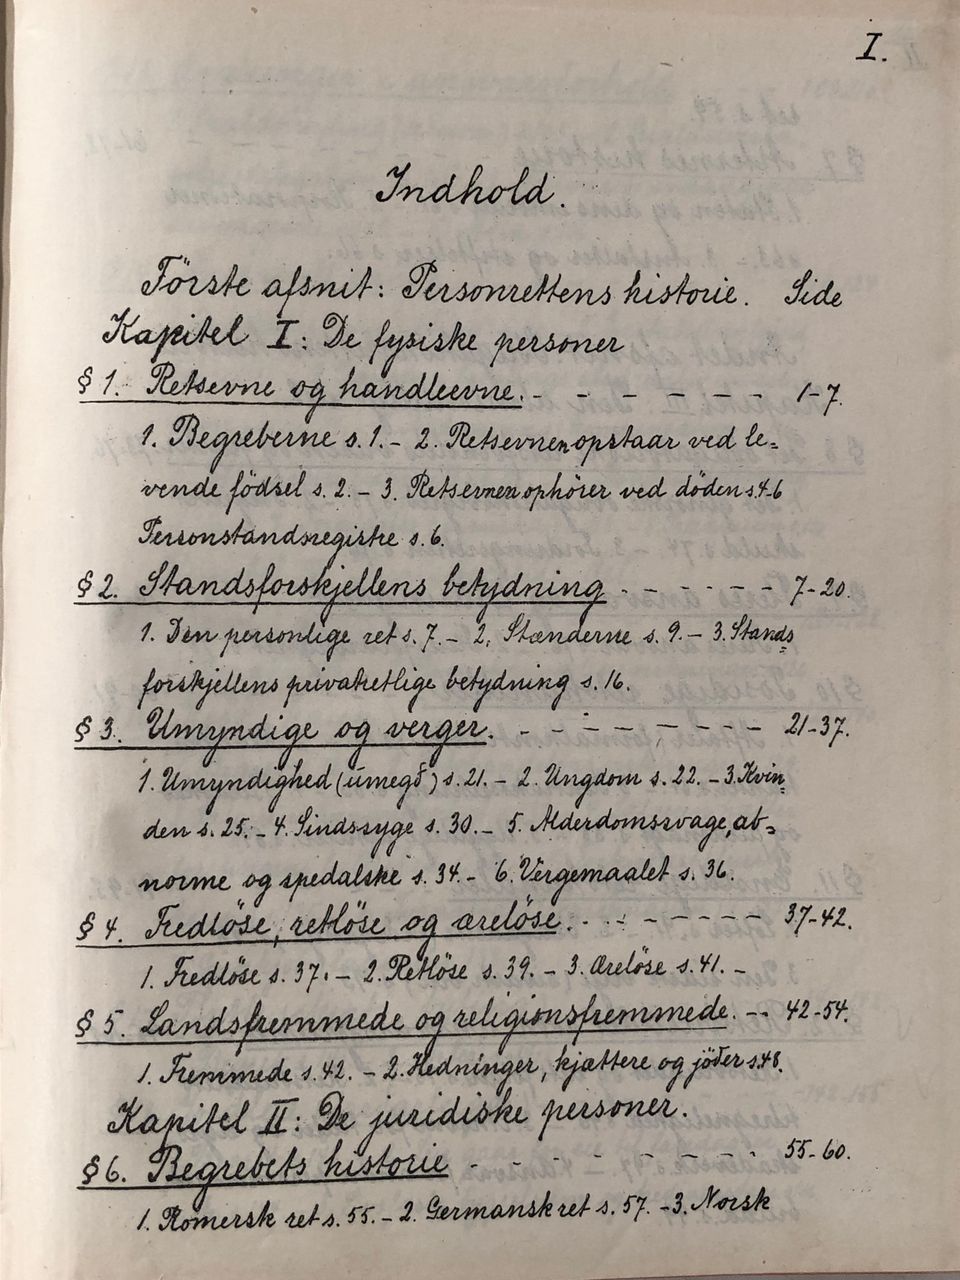 I.
Indhold.
Förste afsnit: Personrettens historie. Side
Kapitel I: De fysiske personer
§ 1. Retsevne og handleevne. - - - - - - - 1-7.
1. Begreberne s. 1. - 2. Retsevnen opstaar ved le-
vende födsel s. 2. - 3. Retsevnen ophörer ved döden s. 4-6
Personstandsregistre s. 6.
§ 2. Standsforskjellens betydning - - - - - - 7-20.
1. Den personlige ret s. 7. - 2. Stænderne s. 9. - 3. Stands-
forskjellens privatretlige betydning s. 16.
§ 3. Umyndige og verger. - - - - - - - - 21-37.
1. Umyndighed (úmegð) s. 21. - 2. Ungdom s. 22. - 3. Kvin-
den s. 25. - 4. Sindssyge s. 30. - 5. Alderdomssvage, ab-
norme og spedalske s. 34. - 6. Vergemaalet s. 36.
§ 4. Fredlöse, retlöse og ærelöse. - - - - - - - 37-42.
1. Fredlöse s. 37. - 2. Retlöse s. 39. - 3. Ærelöse s. 41. -
§ 5. Landsfremmede og religionsfremmede. - - 42-54.
1. Fremmede s. 42. - 2. Hedninger, kjættere og jöder s. 48.
Kapitel II: De juridiske personer.
§ 6. Begrebets historie - - - - - - - - 55-60.
1. Romersk ret s. 55. - 2. Germansk ret s. 57. - 3. Norsk